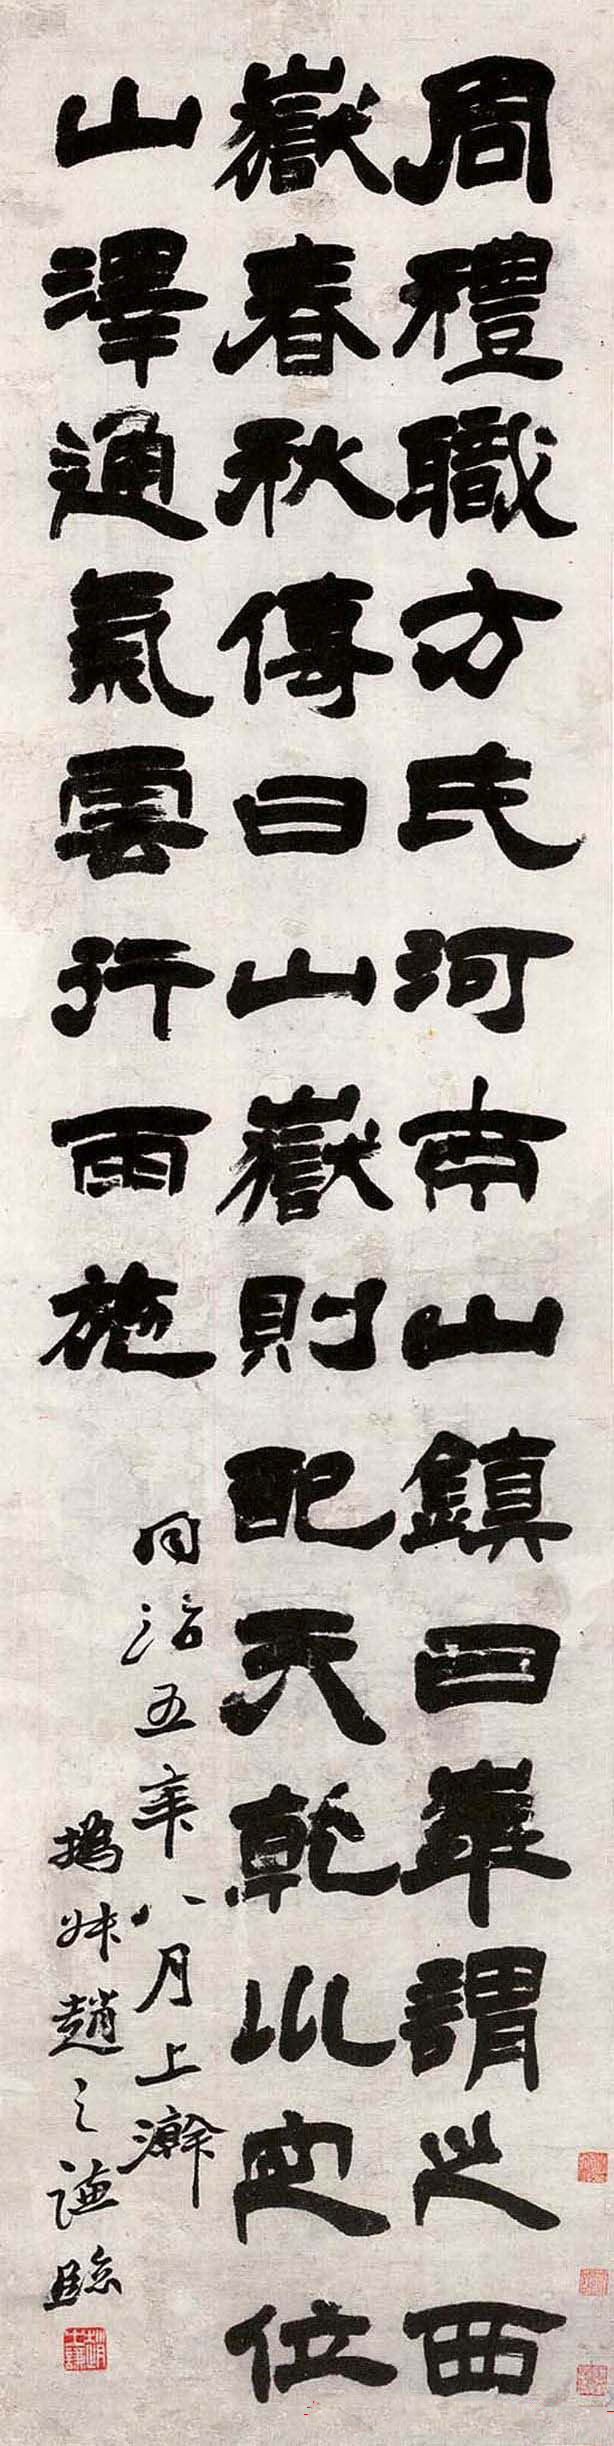 周禮職方氏河南山鎮曰華謂之西
嶽春秋傳曰山嶽則配天乾巛定位
山澤通氣雲行雨施
同治五年八月上澣
撝叔趙之謙臨